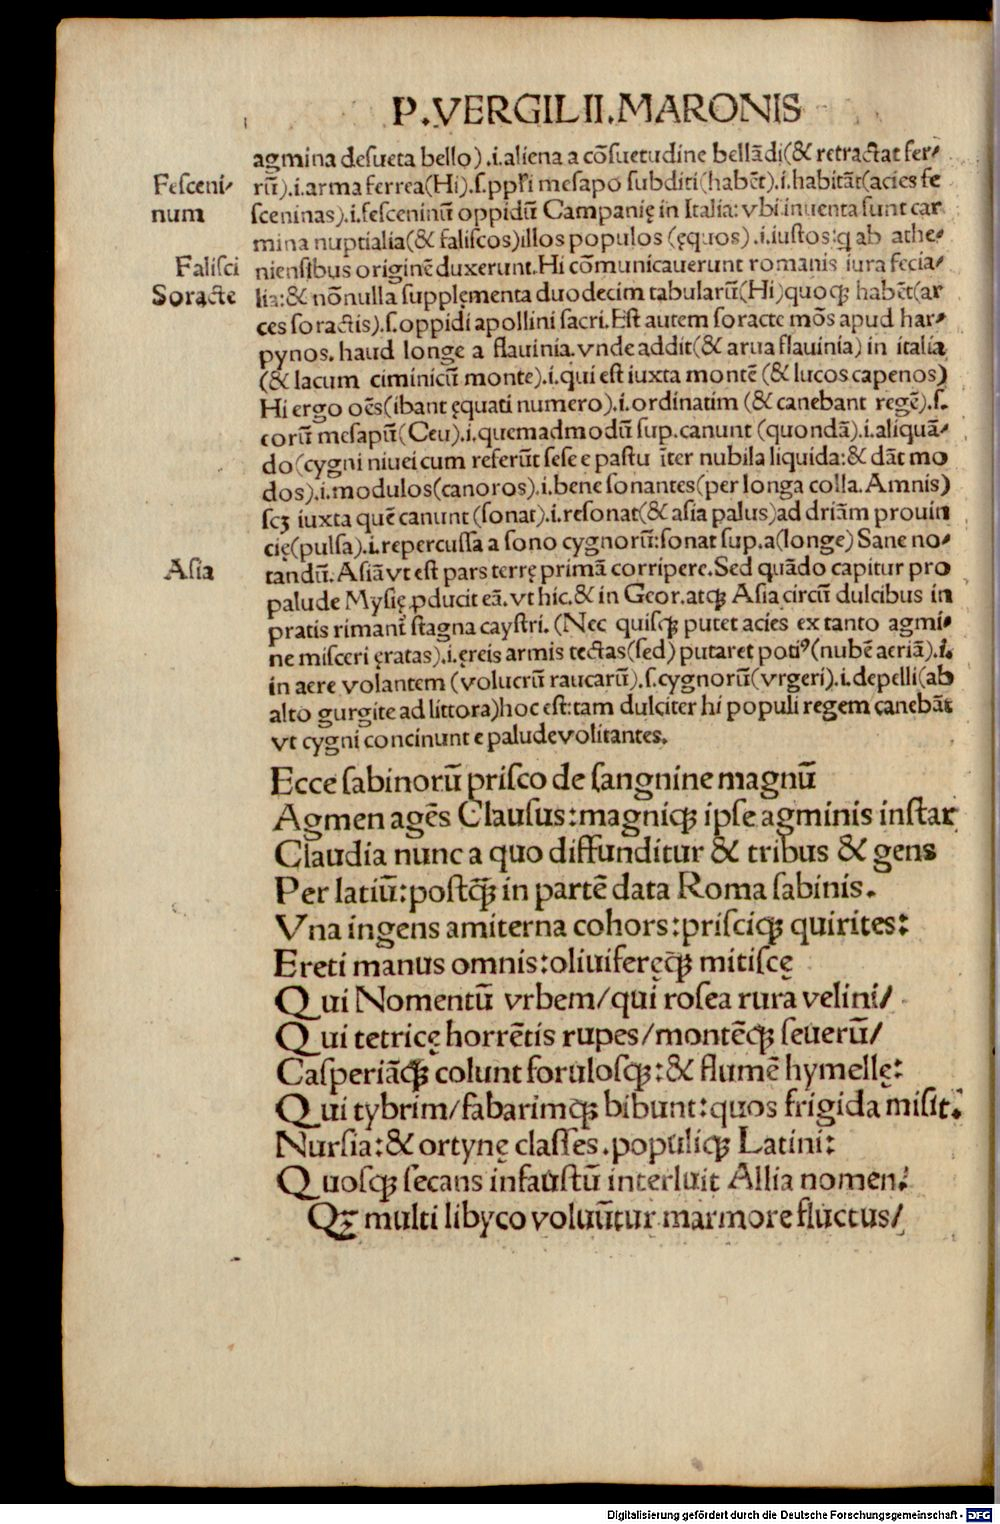 P.VERGILII.MARONIS
agmina desueta bello).i.aliena a cōsuetudine bellādi(& retractat fer⸗
Fesceni⸗
rū).i.arma ferrea(Hi).s.ppri mesapo subditi(habēt).i.habitāt(acies fe
num
sceninas).i.fesceninū oppidū Campanię in Italia:vbi inuenta sunt car
mina nuptialia(& faliscos)illos populos (ęquos) .i.iustos:q ab athe⸗
Falisci
niensibus originē duxerunt.Hi cōmunicauerunt romanis iura fecia⸗
Soracte
lia:& nōnulla supplęmenta duodecim tabularū(Hi)quoqꝫ habēt(ar
ces soractis).s.oppidi apollini sacri.Est autem soracte mōs apud har⸗
pynos. haud longe a flauinia.vnde addit(& arua flauinia) in italia
(& lacum ciminicū monte).i.qui est iuxta montē (& lucos capenos)
Hi ergo oēs(ibant ęquati numero).i.ordinatim (& canebant regē).s.
eorū mesapū(Ceu).i.quemadmodū sup.canunt (quondā).i.aliquā⸗
do(cygni niuei cum referūt sese e pastu īter nubila liquida:& dāt mo
dos).i.modulos(canoros).i.bene sonantes(per longa colla.Amnis)
scꝫ iuxta quē canunt (sonat).i.resonat(& asia palus)ad driām prouin
cię(pulsa).i.repercussa a sono cygnorū:sonat sup.a(longe) Sane no⸗
Asia
tandū.Asiā vt est pars terrę primā corripere.Sed quādo capitur pro
palude Mysię ꝓducit eā.vt hic.& in Geor.atqꝫ Asia circū dulcibus in
pratis rimant̄ stagna caystri. (Nec quisqꝫ putet acies ex tanto agmi⸗
ne misceri ęratas).i.ęreis armis tectas(sed) putaret potiꝰ(nubē aeriā).i.
in aere volantem (volucrū raucarū).s.cygnorū(vrgeri).i.depelli(ab
alto gurgite ad littora)hoc est:tam dulciter hi populi regem canebāt
vt cygni concinunt e palude volitantes.
Ecce sabinorū prisco de sangnine magnū
Agmen agēs Clausus:magniqꝫ ipse agminis instar
Claudia nunc a quo diffunditur & tribus & gens
Per latiū:postq̄ꝫ in partē data Roma sabinis.
Vna ingens amiterna cohors:prisciqꝫ quirites:
Ereti manus omnis:oliuiferęq̄ꝫ mitiscę
Qui Nomentū vrbem/qui rosea rura velini/
Qui tetricę horrētis rupes/montēqꝫ seuerū/
Casperiāqꝫ colunt forulosqꝫ:& flumē hymellę:
Qui tybrim/fabarimqꝫ bibunt:quos frigida misit.
Nursia:& ortynę classes.populiqꝫ Latini:
Quosqꝫ secans infaustū interluit Allia nomen.
Qꝫ multi libyco voluūtur marmore fluctus/
Digitalisierung gefördert durch die Deutsche Forschungsgemeinschaft - DFG